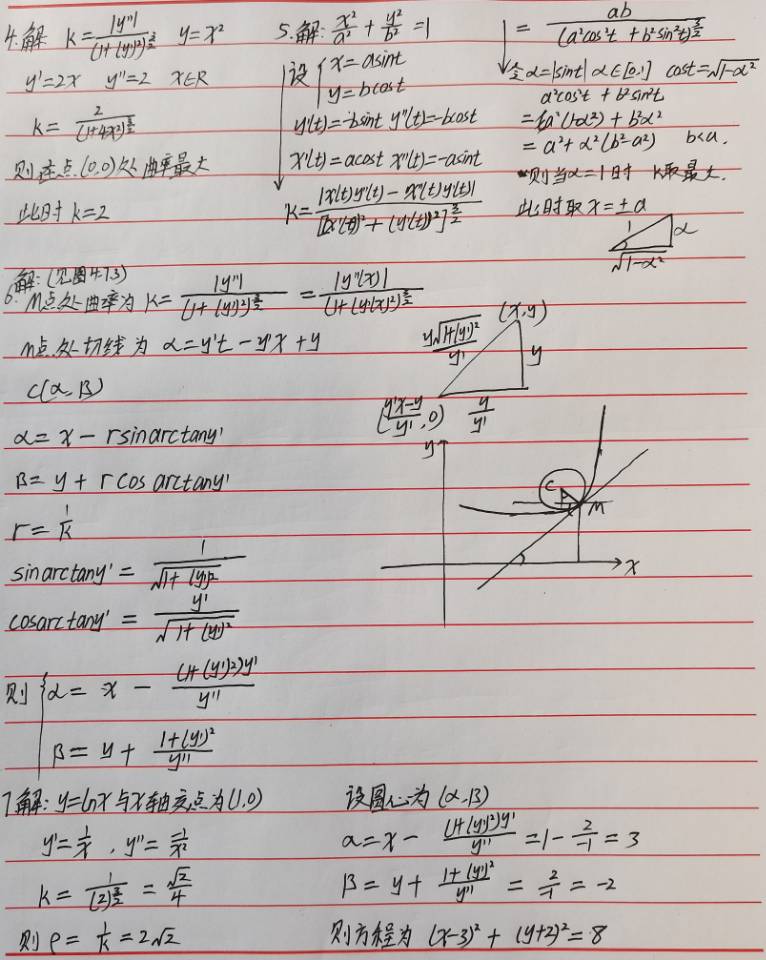 4.解 k=|y''|/(1+(y')²)^{3/2} y=x²
y'=2x y''=2 x∈R
k=2/(1+4x²)^{3/2}
则在点(0,0)处曲率最大
此时k=2
5.解: x²/a²+y²/b²=1
设{x=asint
y=bcost
y'(t)=-bsint y''(t)=-bcost
x'(t)=acost x''(t)=-asint
k=|x'(t)y''(t)-x''(t)y'(t)|/[(x'(t))²+(y'(t))²]^{3/2}
=ab/(a²cos²t+b²sin²t)^{3/2}
令α=|sint| α∈[0,1] cost=√(1-α²)
a²cos²t+b²sin²t
=a²(1-α²)+b²α²
=a²+α²(b²-a²) b<a.
则当α=1时 k取最大.
此时取x=±a
1 α
√(1-α²)
6.解:(见图4.7.3)
M点处曲率为k=|y''|/(1+(y')²)^{3/2}=|y''(x)|/(1+(y'(x))²)^{3/2}
M点处切线为 α=y't-y'x+y
C(α,β)
α=x-rsinarctany'
β=y+rcosarctany'
r=1/k
sinarctany'=1/√(1+(y')²)
cosarctany'=y'/√(1+(y')²)
(x,y)
y√(1+(y')²)/y' y
((y'x-y)/y',0) y/y'
y
C
M
x
则{α=x-(1+(y')²)y'/y''
β=y+(1+(y')²)/y''
7.解:y=lnx与x轴交点为(1,0)
y'=1/x,y''=-1/x²
k=1/(2)^{3/2}=√2/4
则ρ=1/k=2√2
设圆心为(α,β)
α=x-(1+(y')²)y'/y''=1-2/-1=3
β=y+(1+(y')²)/y''=2/-1=-2
则方程为(x-3)²+(y+2)²=8